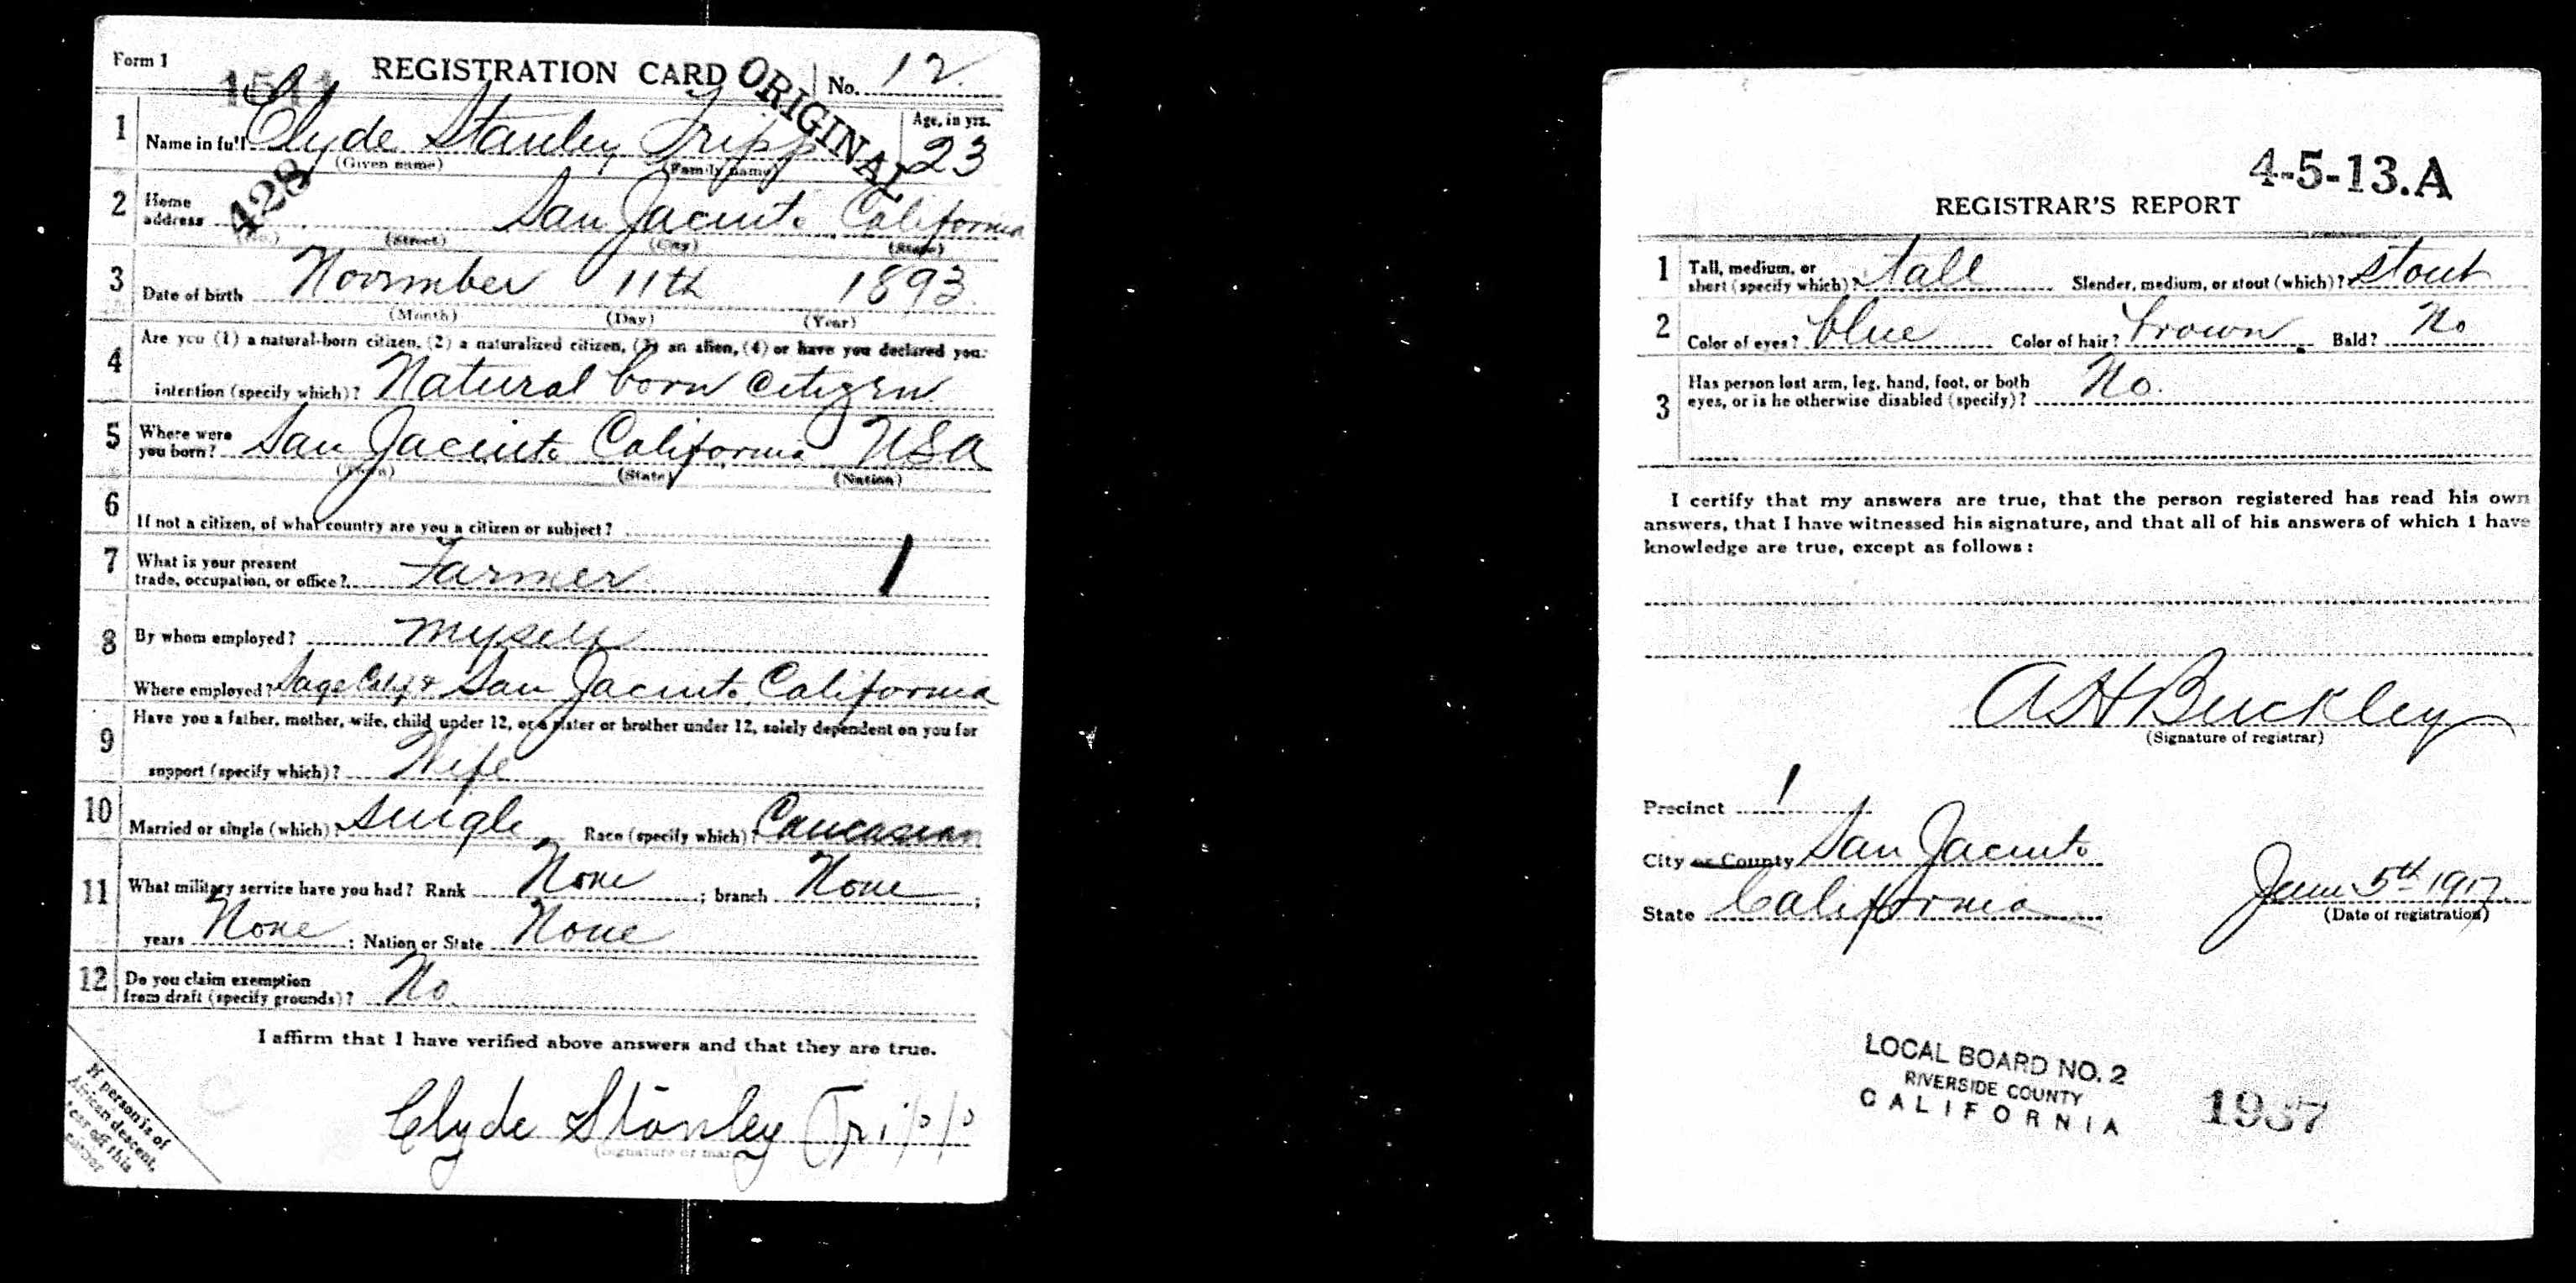 Form 1
REGISTRATION CARD ORIGINAL No. 12
1 Name in full Clyde Stanley Tripp Age, in yrs. 23
(Given name) (Family name)
428
2 Home address San Jacinto California
(No.) (Street) (City) (State)
3 Date of birth Novimber 11th 1893
(Month) (Day) (Year)
4 Are you (1) a natural-born citizen, (2) a naturalized citizen, (3) an alien, (4) or have you declared your
intention (specify which)? Natural born Citizen
5 Where were you born? San Jacinto California USA
(Town) (State) (Nation)
6 If not a citizen, of what country are you a citizen or subject?
7 What is your present trade, occupation, or office? Farmer 1
8 By whom employed? myself
Where employed? Sage Calif & San Jacinto California
9 Have you a father, mother, wife, child under 12, or a sister or brother under 12, solely dependent on you for
support (specify which)? Wife
10 Married or single (which)? single Race (specify which)? Caucasian
11 What military service have you had? Rank None ; branch None ;
years None ; Nation or State None
12 Do you claim exemption from draft (specify grounds)? No.
I affirm that I have verified above answers and that they are true.
Clyde Stanley Tripp
(Signature or mark)
If person is of
African descent,
tear off this
corner
4-5-13.A
REGISTRAR'S REPORT
1 Tall, medium, or short (specify which)? tall Slender, medium, or stout (which)? stout
2 Color of eyes? blue Color of hair? brown Bald? No
3 Has person lost arm, leg, hand, foot, or both eyes, or is he otherwise disabled (specify)? No.
I certify that my answers are true, that the person registered has read his own
answers, that I have witnessed his signature, and that all of his answers of which I have
knowledge are true, except as follows:
A H Buckley
(Signature of registrar)
Precinct 1
City or County San Jacinto
State California June 5th 1917
(Date of registration)
LOCAL BOARD NO. 2
RIVERSIDE COUNTY
CALIFORNIA
1937